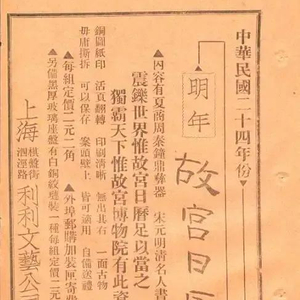 中華民國二十四年份
明年
故宮日
▲內容有夏商周秦鐘鼎彝器 宋元明清名人書
震鑠世界惟故宮日曆足以當之
獨霸天下惟故宮博物院有此資
銅圖紙印 活頁翻轉 印刷清晰 無出其右 一面古物
毋庸撕拆 可以保存 案頭壁上 皆可適用 自備送禮
▲每組定價二元二角 ▲外埠郵購加裝匣寄費
▲另備器厚玻璃座盤有白銅紋鏈裝一種每組定價二元
上海
棋盤街
泗涇路
利利文藝公司